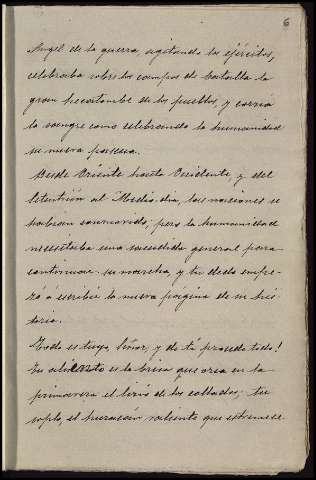 6
Angel de la guerra agitando los ejércitos,
celebraba sobre los campos de batalla la
gran hecatombe de los pueblos, y corría
la sangre como celebrando la humanidad
su nueva pascua.
Desde Oriente hasta Occidente, y del
Setentrión al Mediodía, las naciones se
habían conmovido, pero la humanidad
necesitaba una sacudida general para
continuar su marcha, y tu dedo empe-
zó á escribir la nueva página de su his-
toria.
Todo es tuyo, Señor, y de tí procede todo!
Tu aliento es la brisa que orea en la
primavera el lirio de los collados; tu
soplo, el huracán valiente que estremece